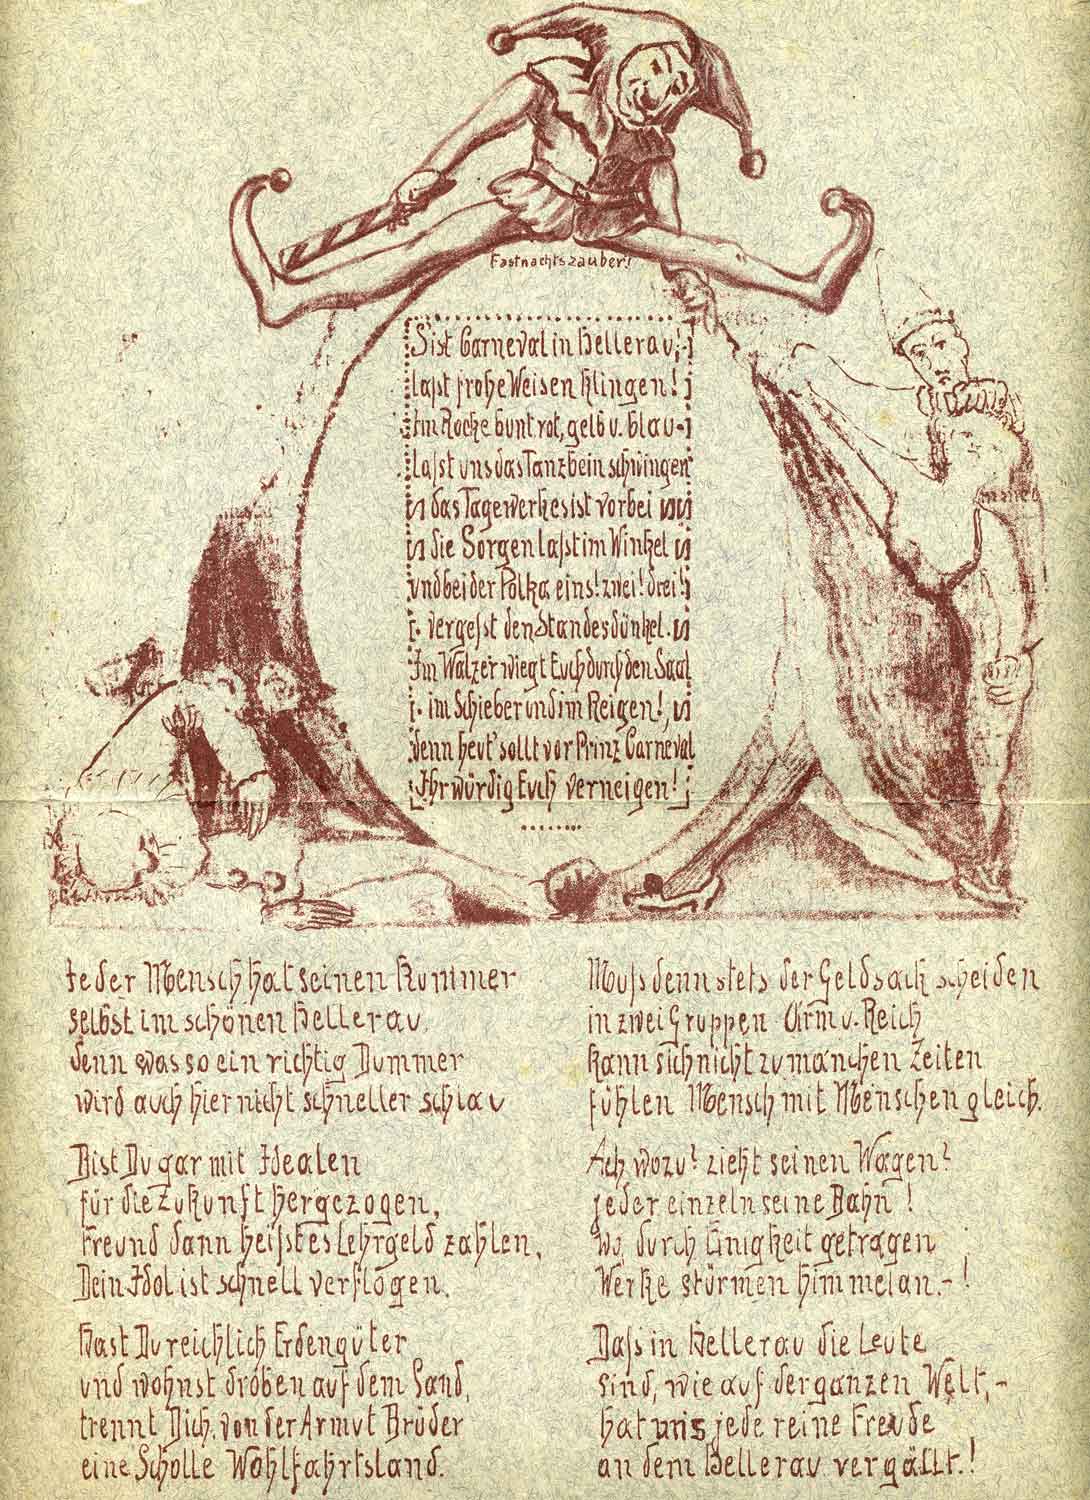 Fastnachtszauber!
S'ist Carneval in Hellerau,
laßt frohe Weisen klingen!
Im Rocke bunt rot, gelb u. blau
laßt uns das Tanzbein schwingen
das Tagewerke ist vorbei
die Sorgen laßt im Winkel
und bei der Polka eins! zwei! drei!
vergeßt den Standesdünkel.
Im Walzer wiegt Euch durch den Saal
im Schieber und im Reigen!
denn heut' sollt vor Prinz Carneval
Ihr würdig Euch verneigen!
Jeder Mensch hat seinen Kummer
selbst im schönen Hellerau,
denn was so ein richtig Dummer
wird auch hier nicht schneller schlau
Bist Du gar mit Idealen
für die Zukunft hergezogen,
Freund dann heißt es Lehrgeld zahlen,
Dein Idol ist schnell verflogen.
Hast Du reichlich Erdengüter
und wohnst dróben auf dem Sand,
trennt Dich von der Armut Brüder
eine Scholle Wohlfahrtsland.
Muß denn stets der Geldsack scheiden
in zwei Gruppen Arm u. Reich
kann sich nicht zu manchen Zeiten
fühlen Mensch mit Menschen gleich.
Ach wozu? zieht seinen Wagen?
jeder einzeln seine Bahn!
Wo, durch Einigkeit getragen
Werke stürmen himmelan.-!
Daß in Hellerau die Leute
sind, wie auf der ganzen Welt,-
hat uns jede reine Freude
an dem Hellerau vergällt.!